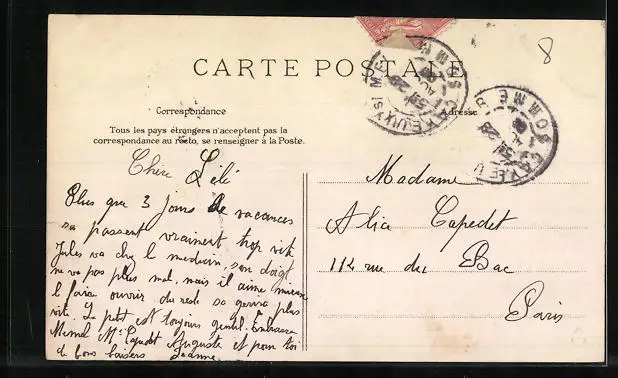 8
CARTE POSTALE
Correspondance
Adresse
Tous les pays étrangers n'acceptent pas la
correspondance au recto, se renseigner à la Poste.
CAYEUX SOMME
CAYEUX SOMME
Chère Lili
Plus que 3 jours de vacances
sa passent vraiment trop vite
Jules va chez le medecin, son doigt
ne va pas plus mal, mais il aime mieux
le faire ouvrir du reste sa gerira plus
vite. Le petit est toujours gentil. Embrasse
Mémé Mr Capedet Auguste et pour toi
de bons baisers Jeanne
Madame
Alia Capedet
112 rue du Bac
Paris